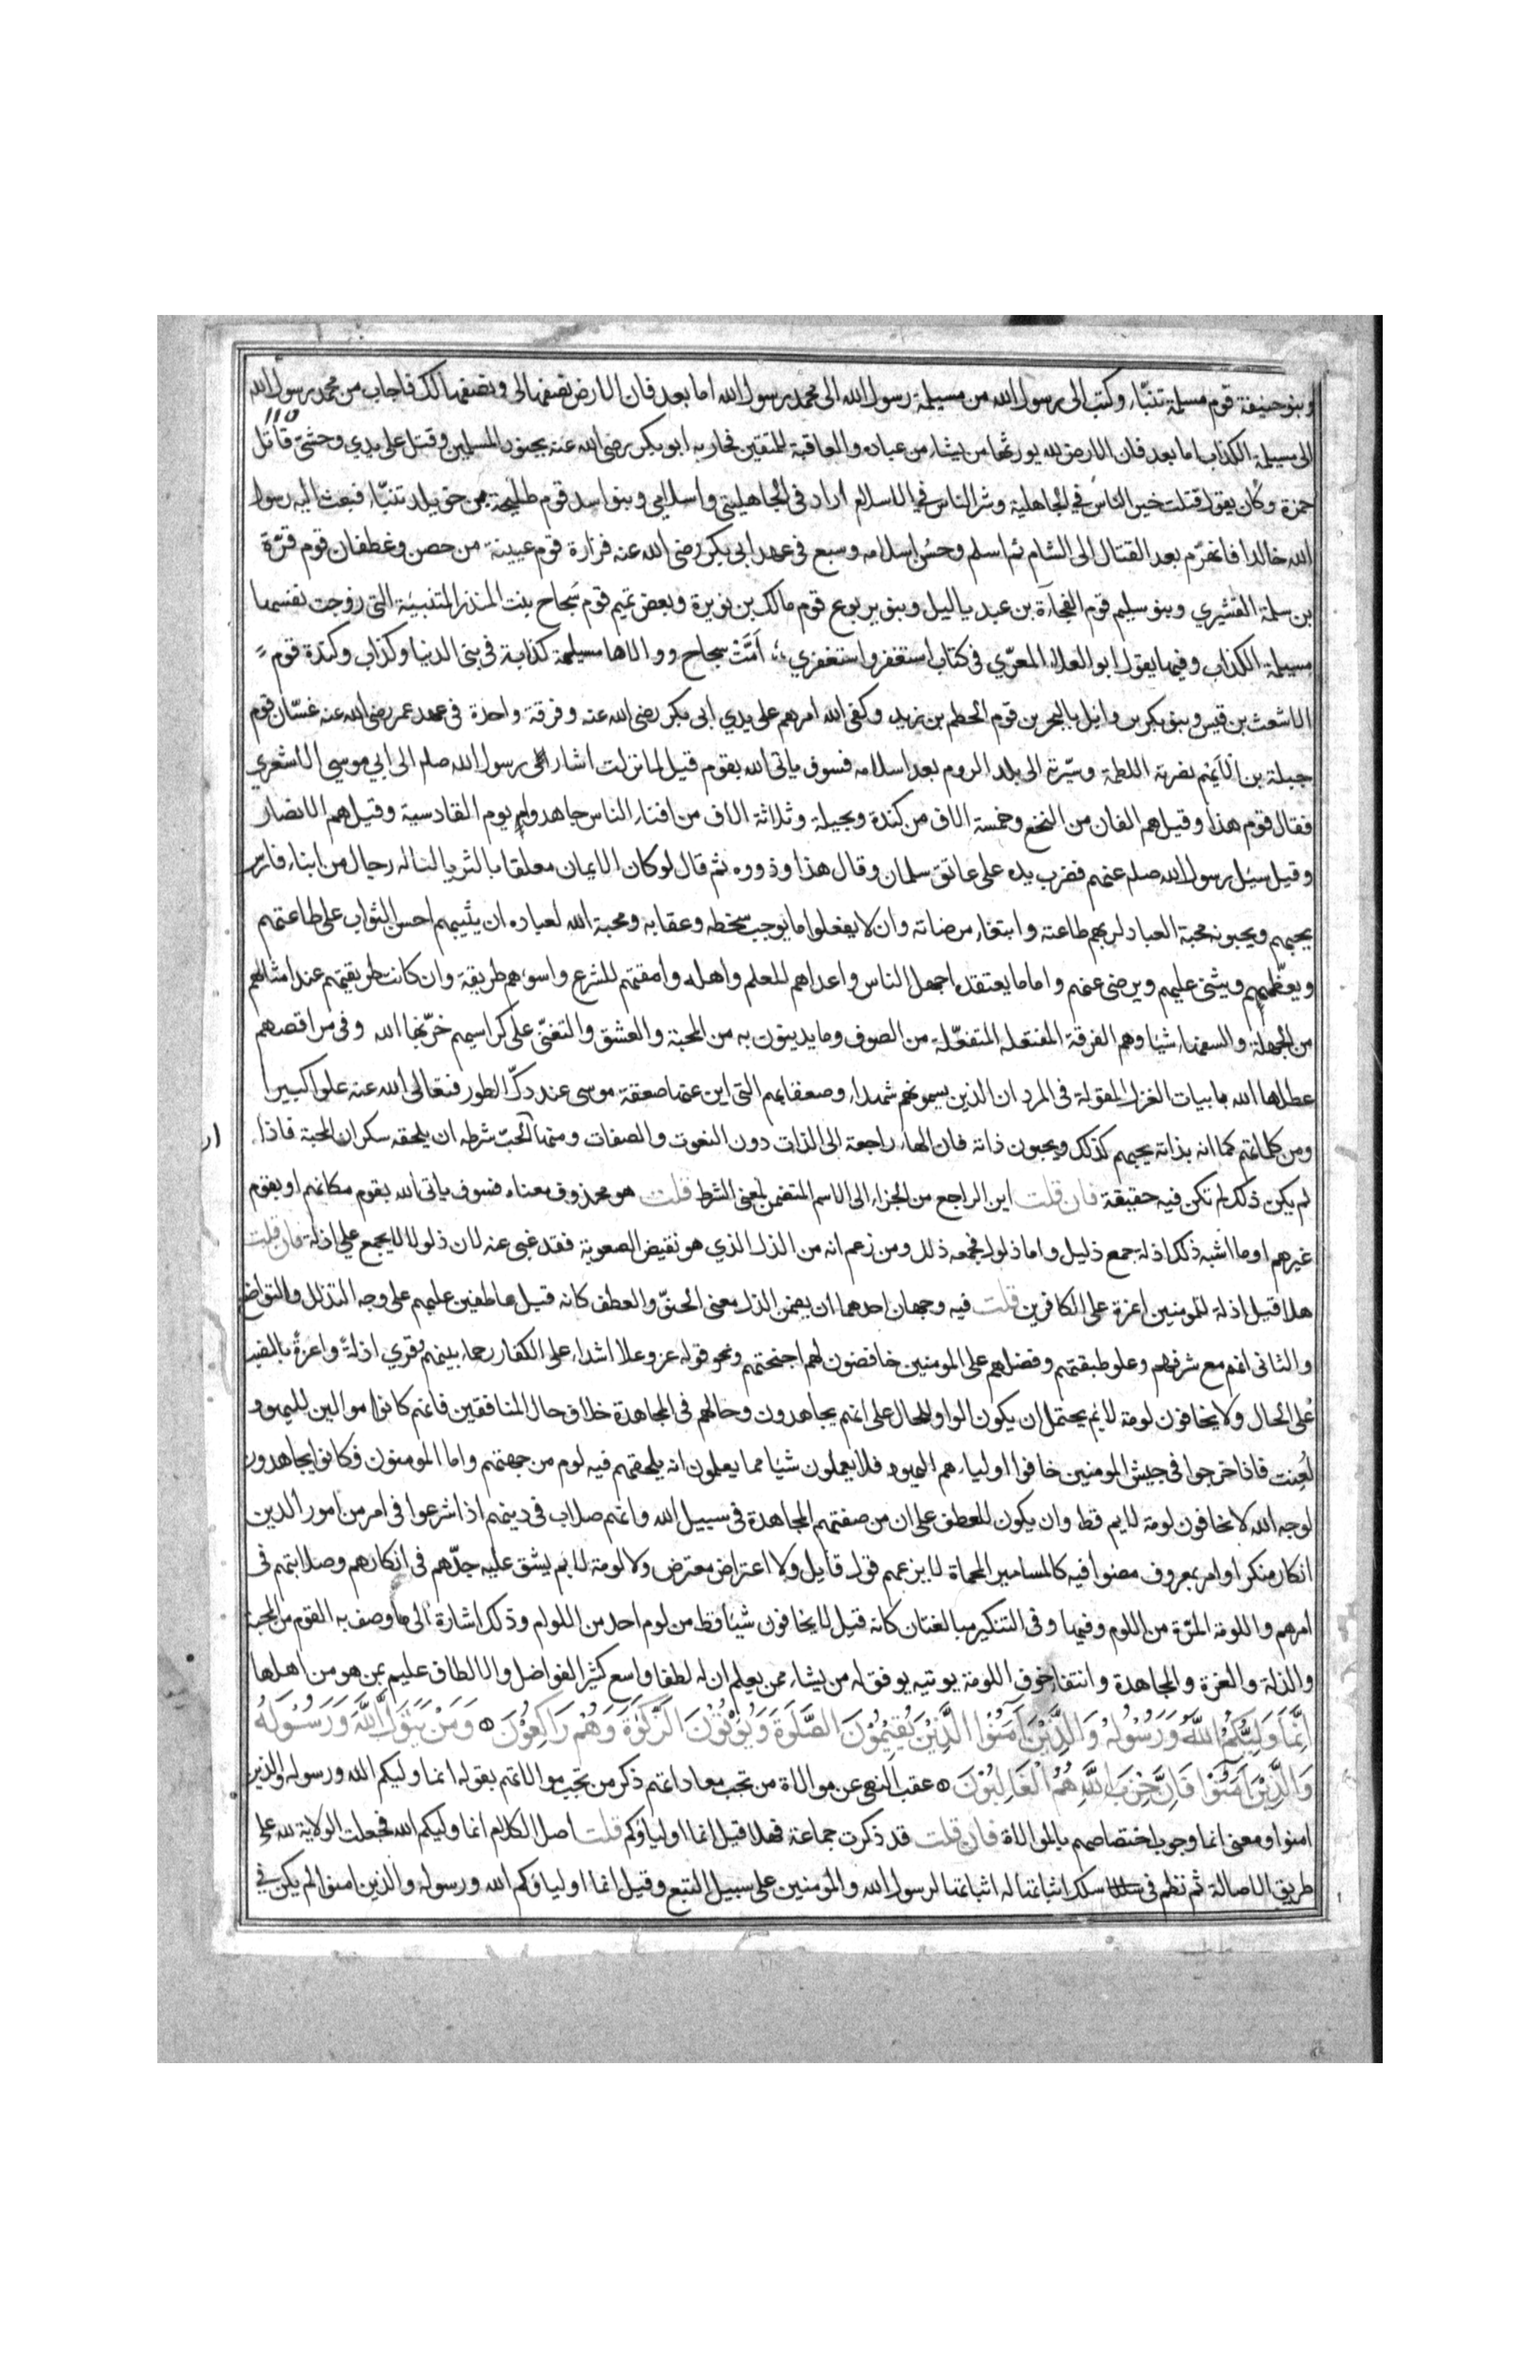 وبنو حنيفة قوم مسيلمة تنبّاء وكتب الى رسول الله من مسيلمة رسول الله الى محمد رسول الله اما بعد فان الارض نصفها لى ونصفها لك فاجاب من محمد رسول الله
الى مسيلمة الكذاب اما بعد فان الارض لله يورثها من يشاء من عباده والعاقبة للمتقين فحاربه ابو بكر رضى الله عنه بجنود المسلمين وقتل على يدي وحشى قاتل
حمزة وكان يقول قتلت خير الناس في الجاهلية وشر الناس في الاسلام اراد فى الجاهليتى واسلامي وبنو اسد قوم طليحة بن خويلد تنبّاء فبعث اليه رسول
الله خالدا فانهزم بعد القتال الى الشام ثم اسلم وحسُن اسلامه وسبع فى عهد ابى بكر رضى الله عنه فزارة قوم عيينة من حصن وغطفان قوم قرّة
بن سلمة القشيري وبنو سليم قوم الفجآءة بن عبد ياليل وبنو يربوع قوم مالك بن نويرة وبعض تميم قوم سَجاح بنت المنذر المتنبيّة التى زوجت نفسها
مسيلمة الكذاب وفيها يقول ابو العلاء المعرّي فى كتاب استغفر واستغفري امَّتْ سجاح ووالاها مسيلمة كذابة فى بنى الدنيا وكذاب وكندة قوم
الاشعث بن قيس وبنو بكر بن وائل بالبحرين قوم الحطم بن زيد وكفى الله امرهم على يدي ابى بكر رضى الله عنه وفرقة واحدة فى عهد عمر رضى الله عنه غسّان قوم
جبلة بن الايهم نصرته اللطمة وسيّرته الى بلد الروم بعد اسلامه فسوف ياتى الله بقوم قيل لما نزلت اشار رسول الله صلم الى ابي موسي الاشعري
فقال قوم هذا وقيل هم الفان من النخع وخمسة الاف من كندة وبجيلة وثلاثة الاف من افناء الناس جاهدوا يوم القادسية وقيل هم الانصار
وقيل سئل رسول الله صلم عنهم فضرب يده على عاتق سلمان وقال هذا وذووه ثم قال لو كان الايمان معلقا بالثريا لناله رجال من ابناء فارس
يحبهم ويحبونه محبة العباد لربهم طاعته وابتغاء مرضاته وان لا يفعلوا ما يوجب سخطه وعقابه ومحبة الله لعباده ان يثيبهم احسن الثواب على طاعتهم
ويعظّمهم ويثنى عليهم ويرضى عنهم واما ما يعتقده اجهل الناس واعداهم للعلم واهله وامقتهم للشرع واسوءهم طريقة وان كانت طريقتهم عند امثالهم
من الجهلة والسفهاء شيئا وهم الفرقة المفتعلة المتفعّلة من الصوف وما يدينون به من المحبة والعشق والتغنّى على كراسيهم خرّبها الله وفى مراقصهم
عطلها الله بابيات الغزل المقولة فى المردان الذين يسمونهم شهداء وصعقاتهم التى اين عنها صعقة موسى عند دكّ الطور فتعالى الله عنه علوا كبيرا
ومن كلماتهم كما انه بذاته يحبهم كذلك ويحبون ذاته فان الهاء راجعة الى الذات دون النعوت والصفات ومنها الحبّ شرطه ان يلحقه سكران المحبة فاذا
لم يكن ذلك لم تكن فيه حقيقة فان قلت اين الراجع من الجزاء الى الاسم المتضمن لمعنى الشرط قلت هو محذوف معناه فسوف ياتى الله بقوم مكانهم او بقوم
غيرهم او ما اشبه ذلك اذلة جمع ذليل واما ذلول فجمعه ذلل ومن زعم انه من الذل الذي هو نقيض الصعوبة فقد غبى عنه لان ذلولا لا يجمع على اذلة فان قلت
هلا قيل اذلة للمومنين اعزة على الكافرين قلت فيه وجهان احدهما ان يضمن الذل معنى الحنوّ والعطف كانه قيل عاطفين عليهم على وجه التذلل والتواضع
والثانى انهم مع شرفهم وعلو طبقتهم وفضلهم على المومنين خافضون لهم اجنحتهم ونحو قوله عز وعلا اشداء على الكفار رحماء بينهم وقري اذلةً واعزةً بالنصب
على الحال ولا يخافون لومة لائم يحتمل ان يكون الواو للحال على انهم يجاهدون وحالهم فى المجاهدة خلاف حال المنافقين فانهم كانوا موالين لليهود
لعنت فاذا خرجوا فى جيش المومنين خافوا اولياءهم اليهود فلا يعملون شيئا مما يعلمون انه يلحقهم فيه لوم من جهتهم واما المومنون فكانوا يجاهدون
لوجه الله لا يخافون لومة لايم قط وان يكون للعطف على ان من صفتهم المجاهدة فى سبيل الله وانهم صلاب فى دينهم اذا شرعوا فى امر من امور الدين
انكار منكر او امر بمعروف مضوا فيه كالمسامير المحماة لا يزعهم قول قايل ولا اعتراض معترض ولا لومة لايم يشق عليه جدّهم فى انكارهم وصلابتهم فى
امرهم واللومة المرّة من اللوم وفيها وفى التنكير مبالغتان كانه قيل لا يخافون شيئا قط من لوم احد من اللوام وذلك اشارة الى ما وصف به القوم من المحبة
والذلة والعزة والمجاهدة وانتفاء خوف اللومة يوتيه يوفق له من يشاء ممن يعلم ان له لطفا واسع كثير الفواضل والالطاف عليم بمن هو من اهلها
اِنَّمَا وَلِيُّكُمُ اللّٰهُ وَرَسُوْلُهُ وَالَّذِيْنَ اٰمَنُوْا الَّذِيْنَ يُقِيْمُوْنَ الصَّلٰوةَ وَيُؤْتُوْنَ الزَّكٰوةَ وَهُمْ رَاكِعُوْنَ وَمَنْ يَتَوَلَّ اللّٰهَ وَرَسُوْلَهُ
وَالَّذِيْنَ اٰمَنُوْا فَاِنَّ حِزْبَ اللّٰهِ هُمُ الْغَالِبُوْنَ عقب النهى عن موالاة من تجب معاداتهم ذكر من تجب موالاتهم بقوله انما وليكم الله ورسوله والذين
امنوا ومعنى انما وجوب اختصاصهم بالموالاة فان قلت قد ذكرت جماعة فهلا قيل انما اولياؤكم قلت اصل الكلام انما وليكم الله فجعلت الولاية لله على
طريق الاصالة ثم نظم فى سلك اثباتها له اثباتها لرسول الله والمومنين على سبيل التبع وقيل انما اولياؤكم الله ورسوله والذين امنوا لم يكن في